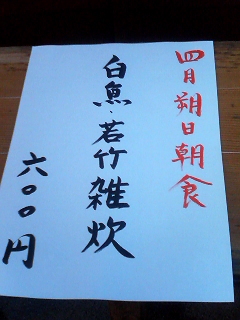 四月朔日朝食
白魚・若竹雑炊
六〇〇円